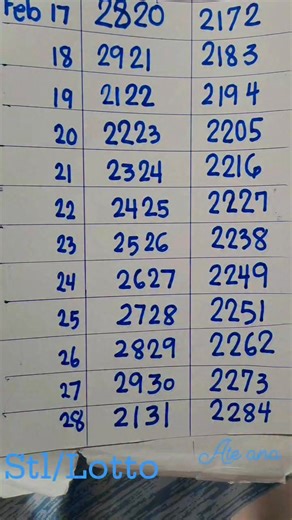 Feb 17 2820 2172
18 2921 2183
19 2122 2194
20 2223 2205
21 2324 2216
22 2425 2227
23 2526 2238
24 2627 2249
25 2728 2251
26 2829 2262
27 2930 2273
28 2131 2284
Stl/Lotto Ate ana